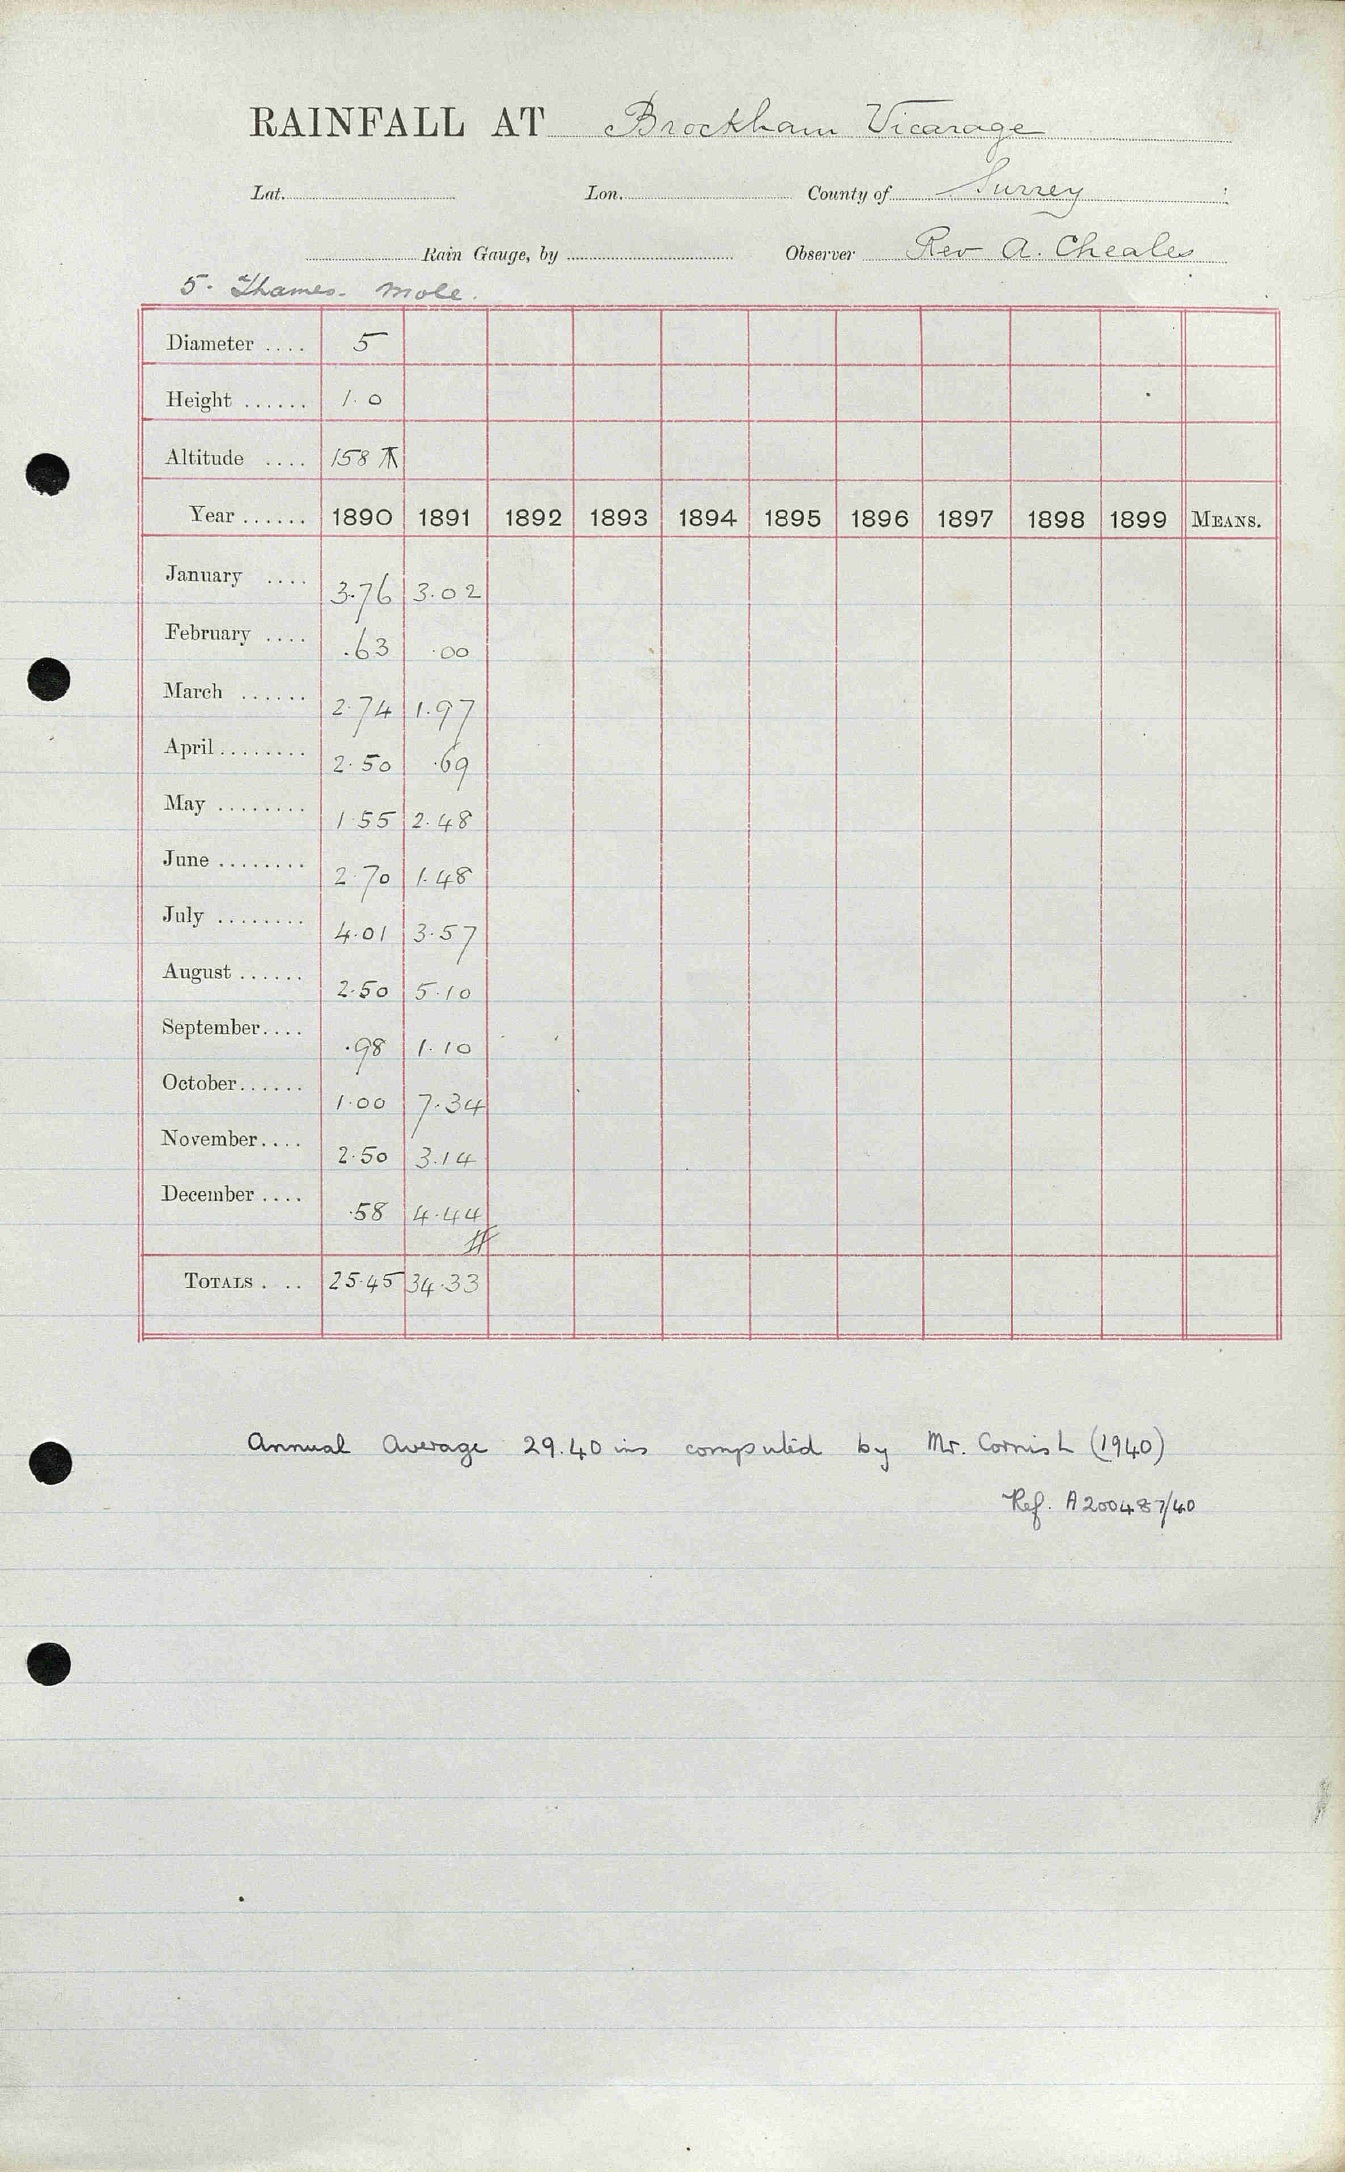 RAINFALL AT Brockham Vicarage
Lat. Lon. County of Surrey
Rain Gauge, by Observer Rev A. Cheales
5. Thames. Mole.
Diameter .... 5
Height ...... 1. 0
Altitude .... 158
Year ...... 1890 1891 1892 1893 1894 1895 1896 1897 1898 1899 MEANS.
January .... 3.76 3.02
February .... .63 .00
March ...... 2.74 1.97
April ........ 2.50 .69
May ........ 1.55 2.48
June ........ 2.70 1.48
July ........ 4.01 3.57
August ...... 2.50 5.10
September.... .98 1.10
October...... 1.00 7.34
November.... 2.50 3.14
December .... .58 4.44
TOTALS . .. 25.45 34.33
Annual Average 29.40 ins computed by Mr. Cornish (1940)
Ref. A200487/40